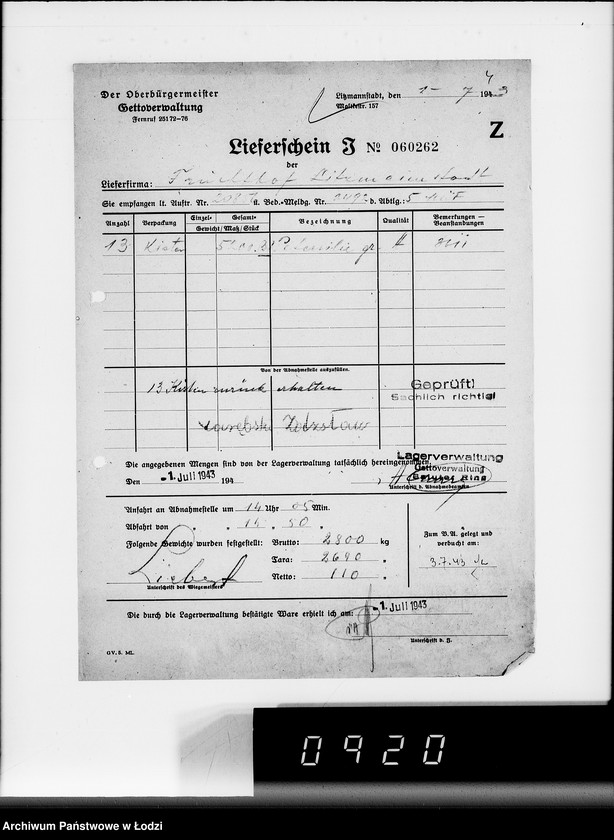 Der Oberbürgermeister
Gettoverwaltung
Fernruf 25172-76
Litzmannstadt, den 1 - 7 194
Maltestr. 157
Z
Lieferschein J № 060262
der
Lieferfirma: Fruchthof Litzmannstadt
Sie empfangen lt. Auftr. Nr. u. Bed.-Meldg. Nr. d. Abtlg.:
Anzahl Verpackung Einzel- Gesamt- Bezeichnung Qualität Bemerkungen — Beanstandungen
Gewicht/Maß/Stück
13 Kisten Petersilie gr. A
Von der Abnahmestelle auszufüllen.
13 Kisten zurück erhalten
Geprüft!
Sachlich richtig!
Lagerverwaltung
Gettoverwaltung
Die angegebenen Mengen sind von der Lagerverwaltung tatsächlich hereingenommen.
Den -1. Juli 1943 194
Unterschrift d. Abnahmebeamten
Anfahrt an Abnahmestelle um 14 Uhr 05 Min.
Abfahrt von „ „ 14 „ 50 „
Folgende Gewichte wurden festgestellt: Brutto: 2800 kg
Tara: 2690 „
Netto: 110 „
Zum B. A. gelegt und
verbucht am:
3.7.43
Liebert
Unterschrift des Wiegemeisters
Die durch die Lagerverwaltung bestätigte Ware erhielt ich am: -1. Juli 1943
GV. 5. ML.
0920
Archiwum Państwowe w Łodzi